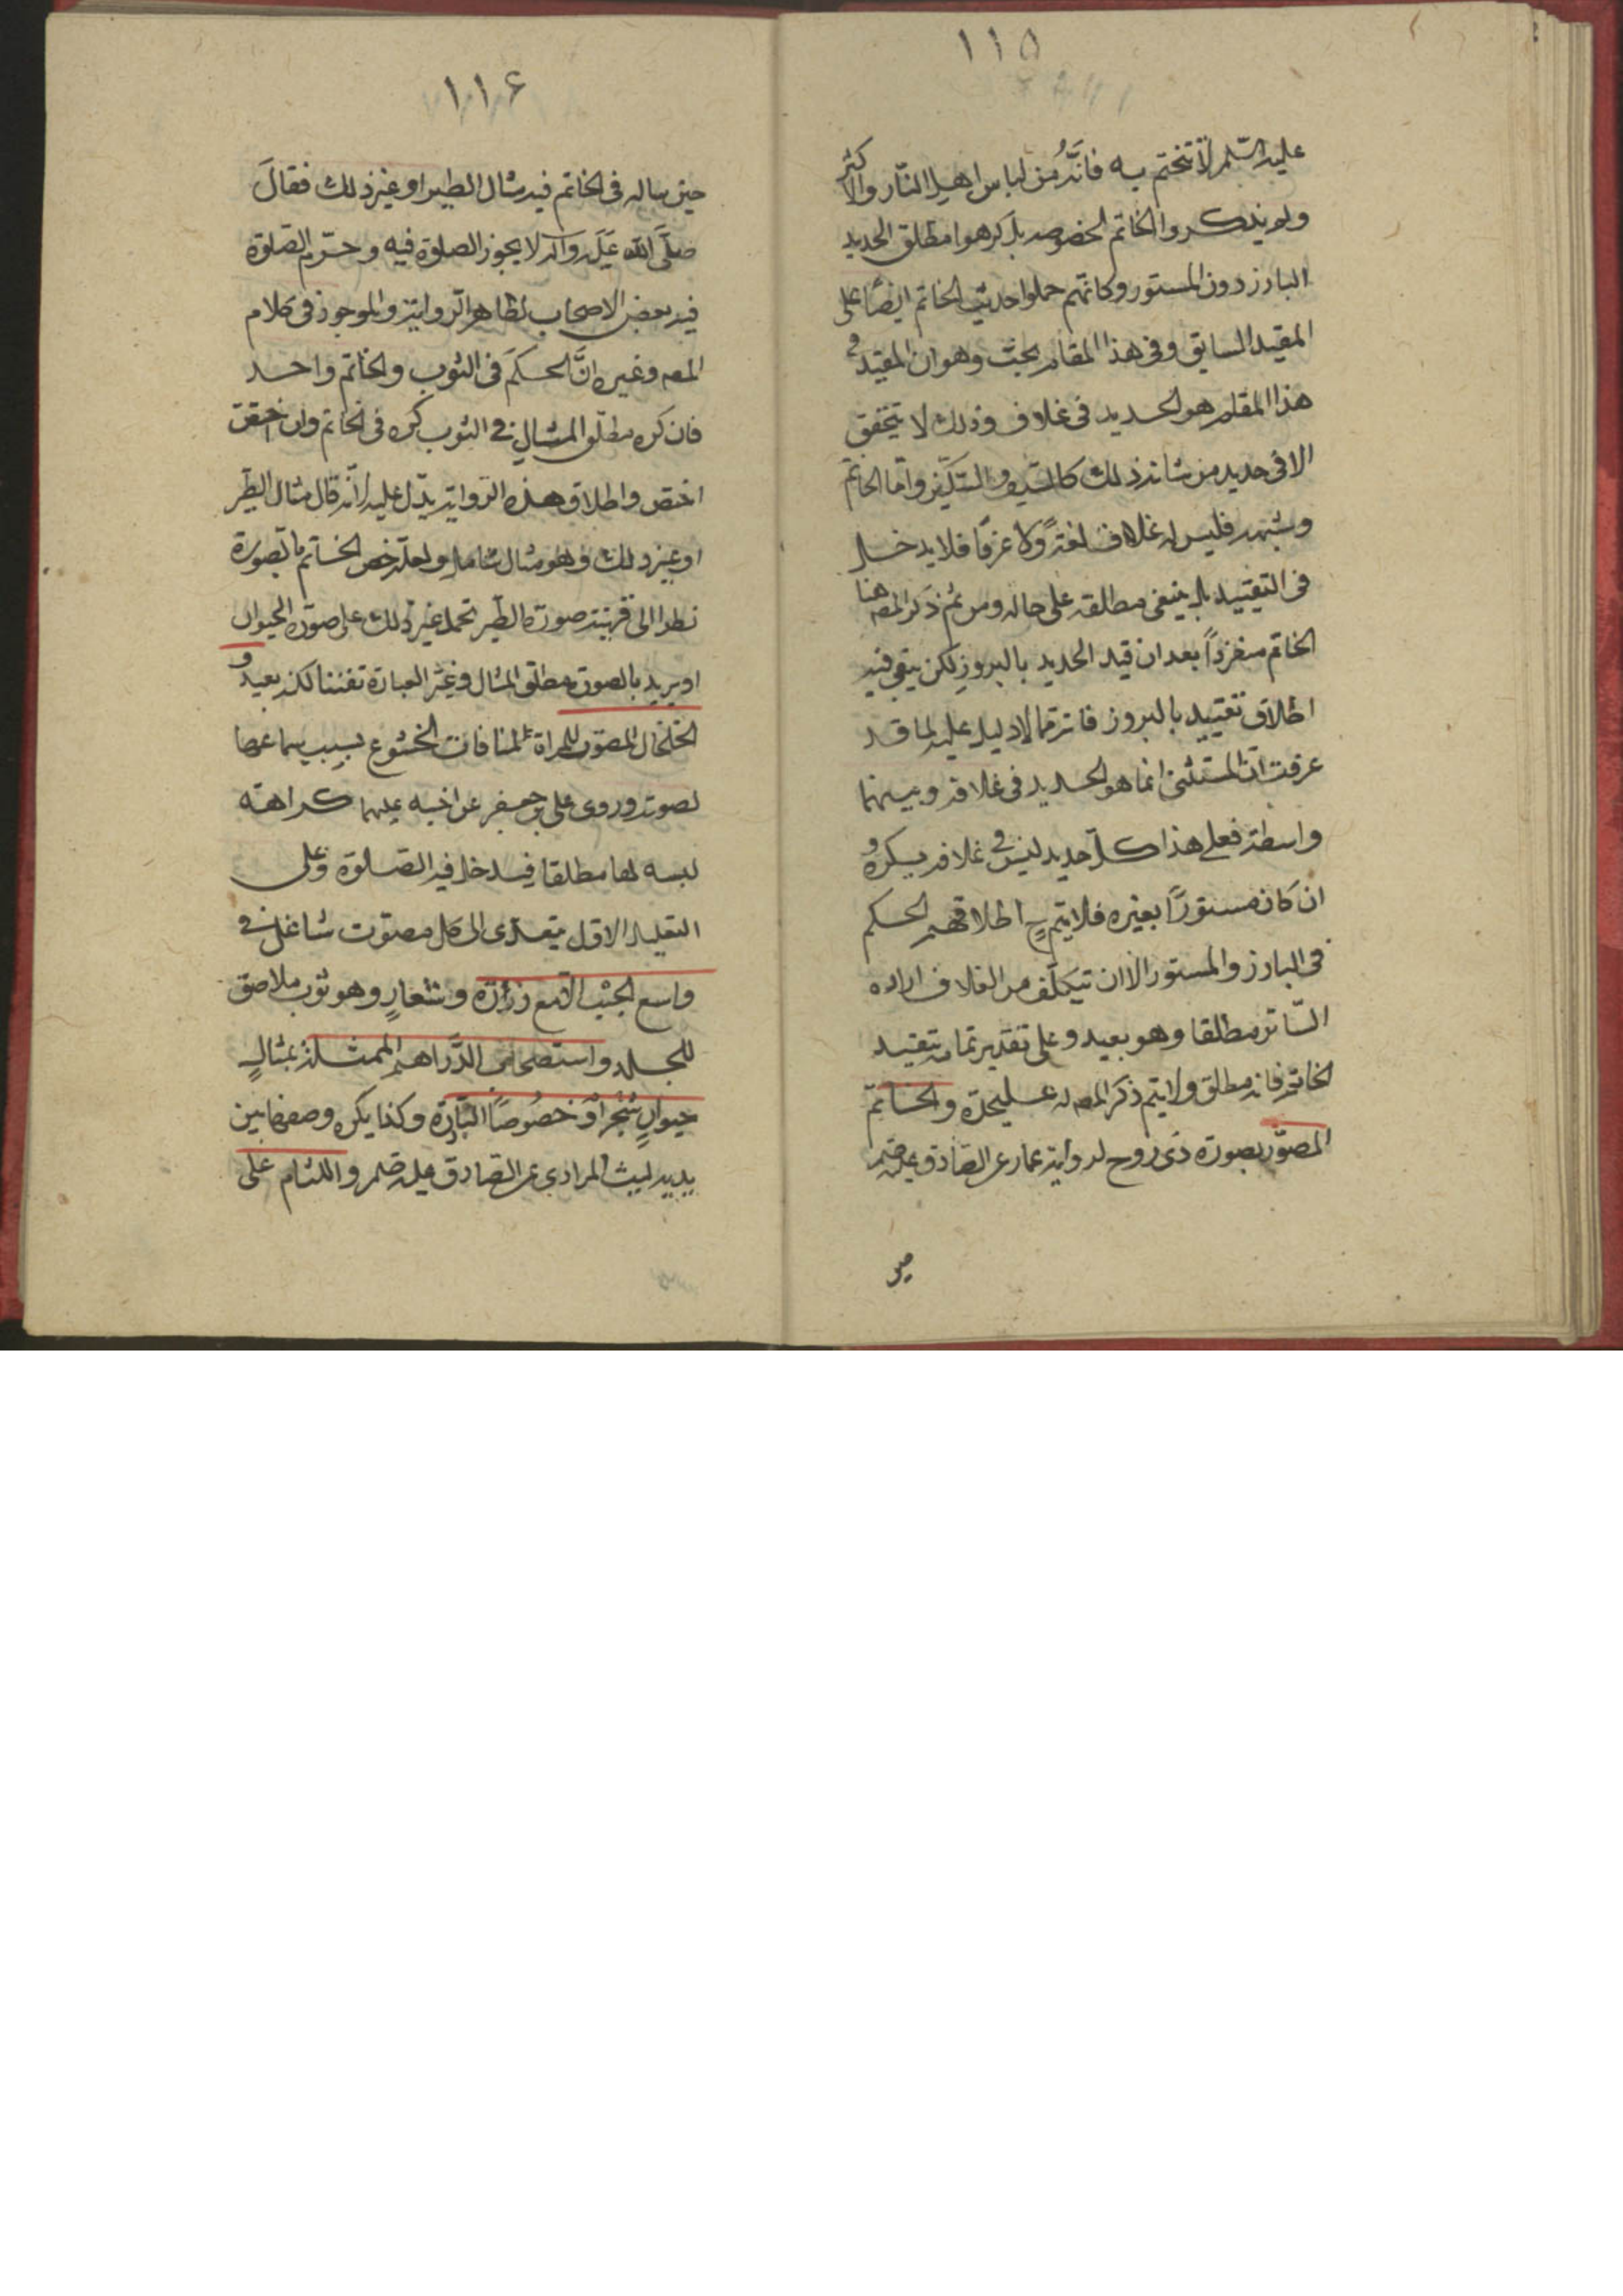 ١١٥
عليه السلم لا تختم به فانَّه من لباس اهل النّار والاكثر
ولم يذكروا الخاتم لخصوصه بل كرهوا مطلق الحديد
البارز دون المستور وكانّهم حملوا حديث الخاتم ايضًا على
المقيد السابق وفى هذا المقام بحث وهو ان المقيد فى
هذا المقام هو الحديد فى غلاف وذلك لا يتحقق
الا فى حديد من شانه ذلك كالسّيف والسّكين وامّا الخاتم
وشبهه فليس له غلاف لغةً ولا عرفًا فلا يدخل
فى التقييد بل يبقى مطلقه على حاله ومن ثم ذكر المص هنا
الخاتم منفردًا بعد ان قيد الحديد بالبروز لكن يبقى فيه
اطلاق تقييد بالبروز فانه ممّا لا دليل عليه لما قد
عرفت ان المستثنى انما هو الحديد فى غلافه وبينهما
واسطة فعلى هذا كلّ حديد ليس فى غلافه يكره و
ان كان مستورًا بغيره فلا يتم ح اطلاقهم الحكم
فى البارز والمستور الا ان يتكلّف من الغلاف اراده
السّاتر مطلقا وهو بعيد وعلى تقدير تمامه يتقيد
الخاتم فانه مطلق ولا يتم ذكر المص له على حدة والخاتم
المصوّر بصورة ذى روح لرواية عمار عن الصّادق عليه
١١٦
حين ساله فى الخاتم فيه مثال الطير او غير ذلك فقالَ
صلّى الله عليه وآله لا يجوز الصلوة فيه وحرّم الصّلوة
فيه بعض الاصحاب لظاهر الرّواية والموجود فى كلام
المص وغيره انَّ الحكمَ فى الثوب والخاتم واحد
فان كره مطلق المثال فى الثوب كره فى الخاتم وان اختص
اختص واطلاق هذه الرواية يدّل عليه لانّه قال مثال الطّير
او غير ذلك وهو مثال شامل ولعلّه خص الخاتم بالصورة
نظرا الى قرينة صورة الطّير تحمل غير ذلك على صورة الحيوان
او يريد بالصورة مطلق المثال وغيّر العبارة تفننا لكنه بعيد و
الخلخال المصوّت للمراة لمنافات الخشوع بسبب سماعها
لصوته وروى على بن جعفر عن اخيه عليهما كراهة
لبسه لها مطلقا فيدخل فيه الصّلوة وعلى
التعليل الاوّل يتعدّى الى كل مصوّت شاغل فى
واسع الجيب الا مع زرّه وشعارٍ وهو ثوب ملاصق
للجلد واستصحاب الدّراهم الممثلة بمثالِ
حيوانٍ شجرٍ او خصُوصًا البارزة وكذا يكره وضعها بين
يديه لليث المرادى عن الصّادق عليه واللثام على